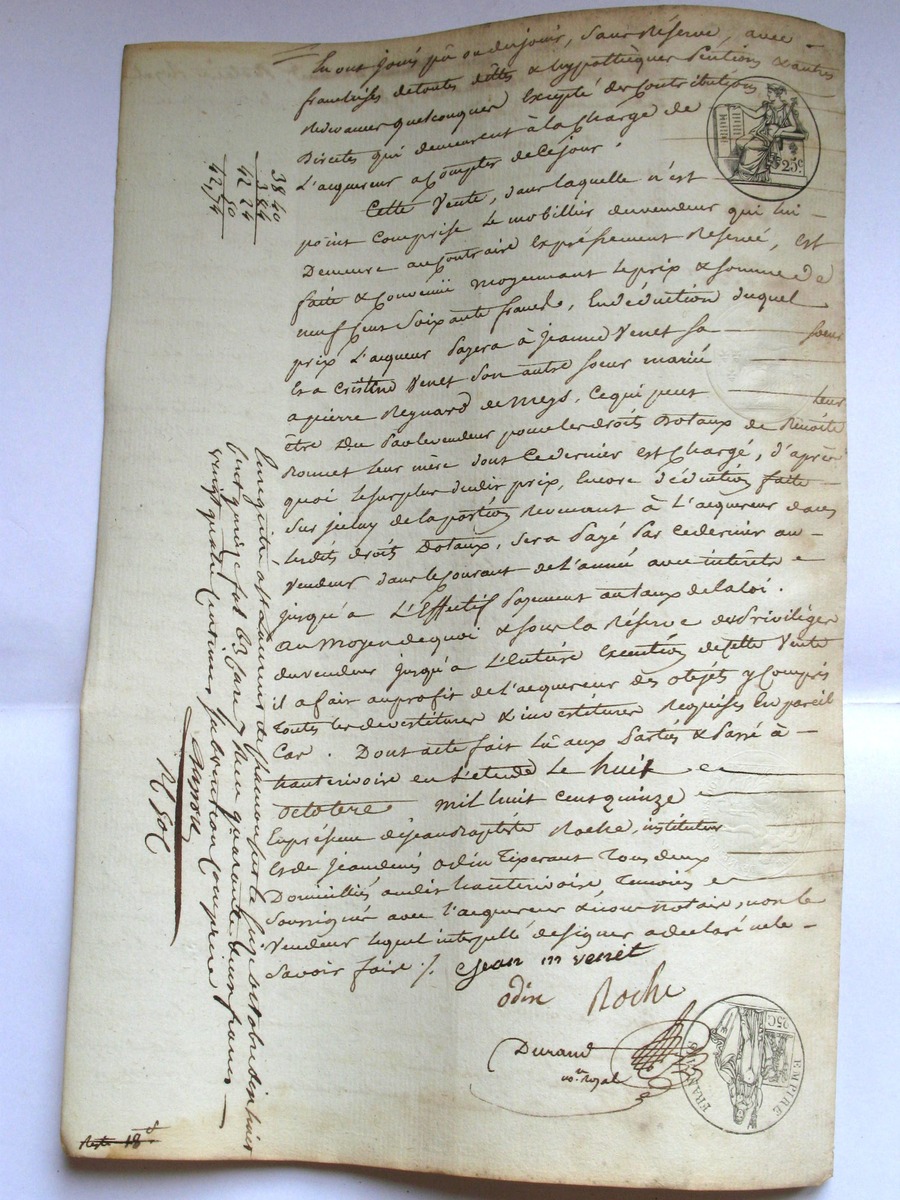 en ont jouis pû ou du jouir, sans Réserve, avec
franchises de toutes dettes & hypothèques Pentions & autres
Redevances quelconques Excepté des Contributions
Directes qui demeurent à la Charge de
L'acquereur a Compter de Cejour.
Cette Vente, dans laquelle n'est
point Comprise le mobillier du vendeur qui lui
Demeure au Contraire Expréssement Reservé, est
faite & Convenüe moyennant le prix & somme de
neuf Cent Soixante francs, En déduction duquel
prix L'acquereur Payera à jeanne Venet sa soeur
Et a Cristine Venet son autre soeur mariée
a pierre Reynard de Meys, Ce qui peut leur
être Du Par le vendeur pour les droits Dotaux de Benoite
leur mère dont Ce dernier est Chargé, d'après
quoi le surplus dudit prix, Encore déduction faite
Sur jceluy de la portion Revenant à L'acquereur dans
lesdits droits Dotaux, sera Payé Par ce dernier au
Vendeur dans le Courant de L'année avec intérêts
jusqu'a L'Effectif Payement au taux de la loi.
au Moyen de quoi & sous la Réserve du Privilège
du vendeur jusqu'a L'Entière Execution de cette Vente
il a fait au profit de L'acquereur des objets y Compris
toutes les devestitures & investitures Requises En pareil
Cas. Dont acte fait Lû aux Parties & Passé à
hauterivoire en L'etude Le huit
octobre mil huit Cent quinze
En présence de jean Baptiste Roche, instituteur
Et de Jean denis odin Tisserant Tous deux
Domiciliés audit hauterivoire, Temoins
Soussignés avec l'acquereur & nous Notaire, non le
Vendeur lequel interpellé de signer a declaré ne le
Savoir faire ./. Jean m venet
odin Roche
Durand
no.re Royal
25c.
EMPIRE FRANÇAIS
25C
38 40
3 84
42 24
50
42,74
Enregistré a St
deux francs
vingt quatre Centimes subvention Comprise